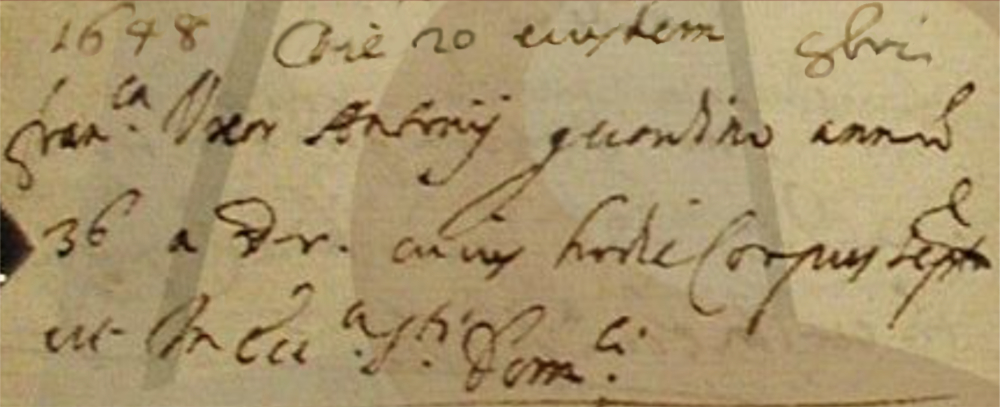 1648 Die 20 eiusdem 8bris
Fran.ca Uxor Antonij annor
36 a D. r. cuius hodie Corpus sept
est In Ecc.a S.ti Dom.ci